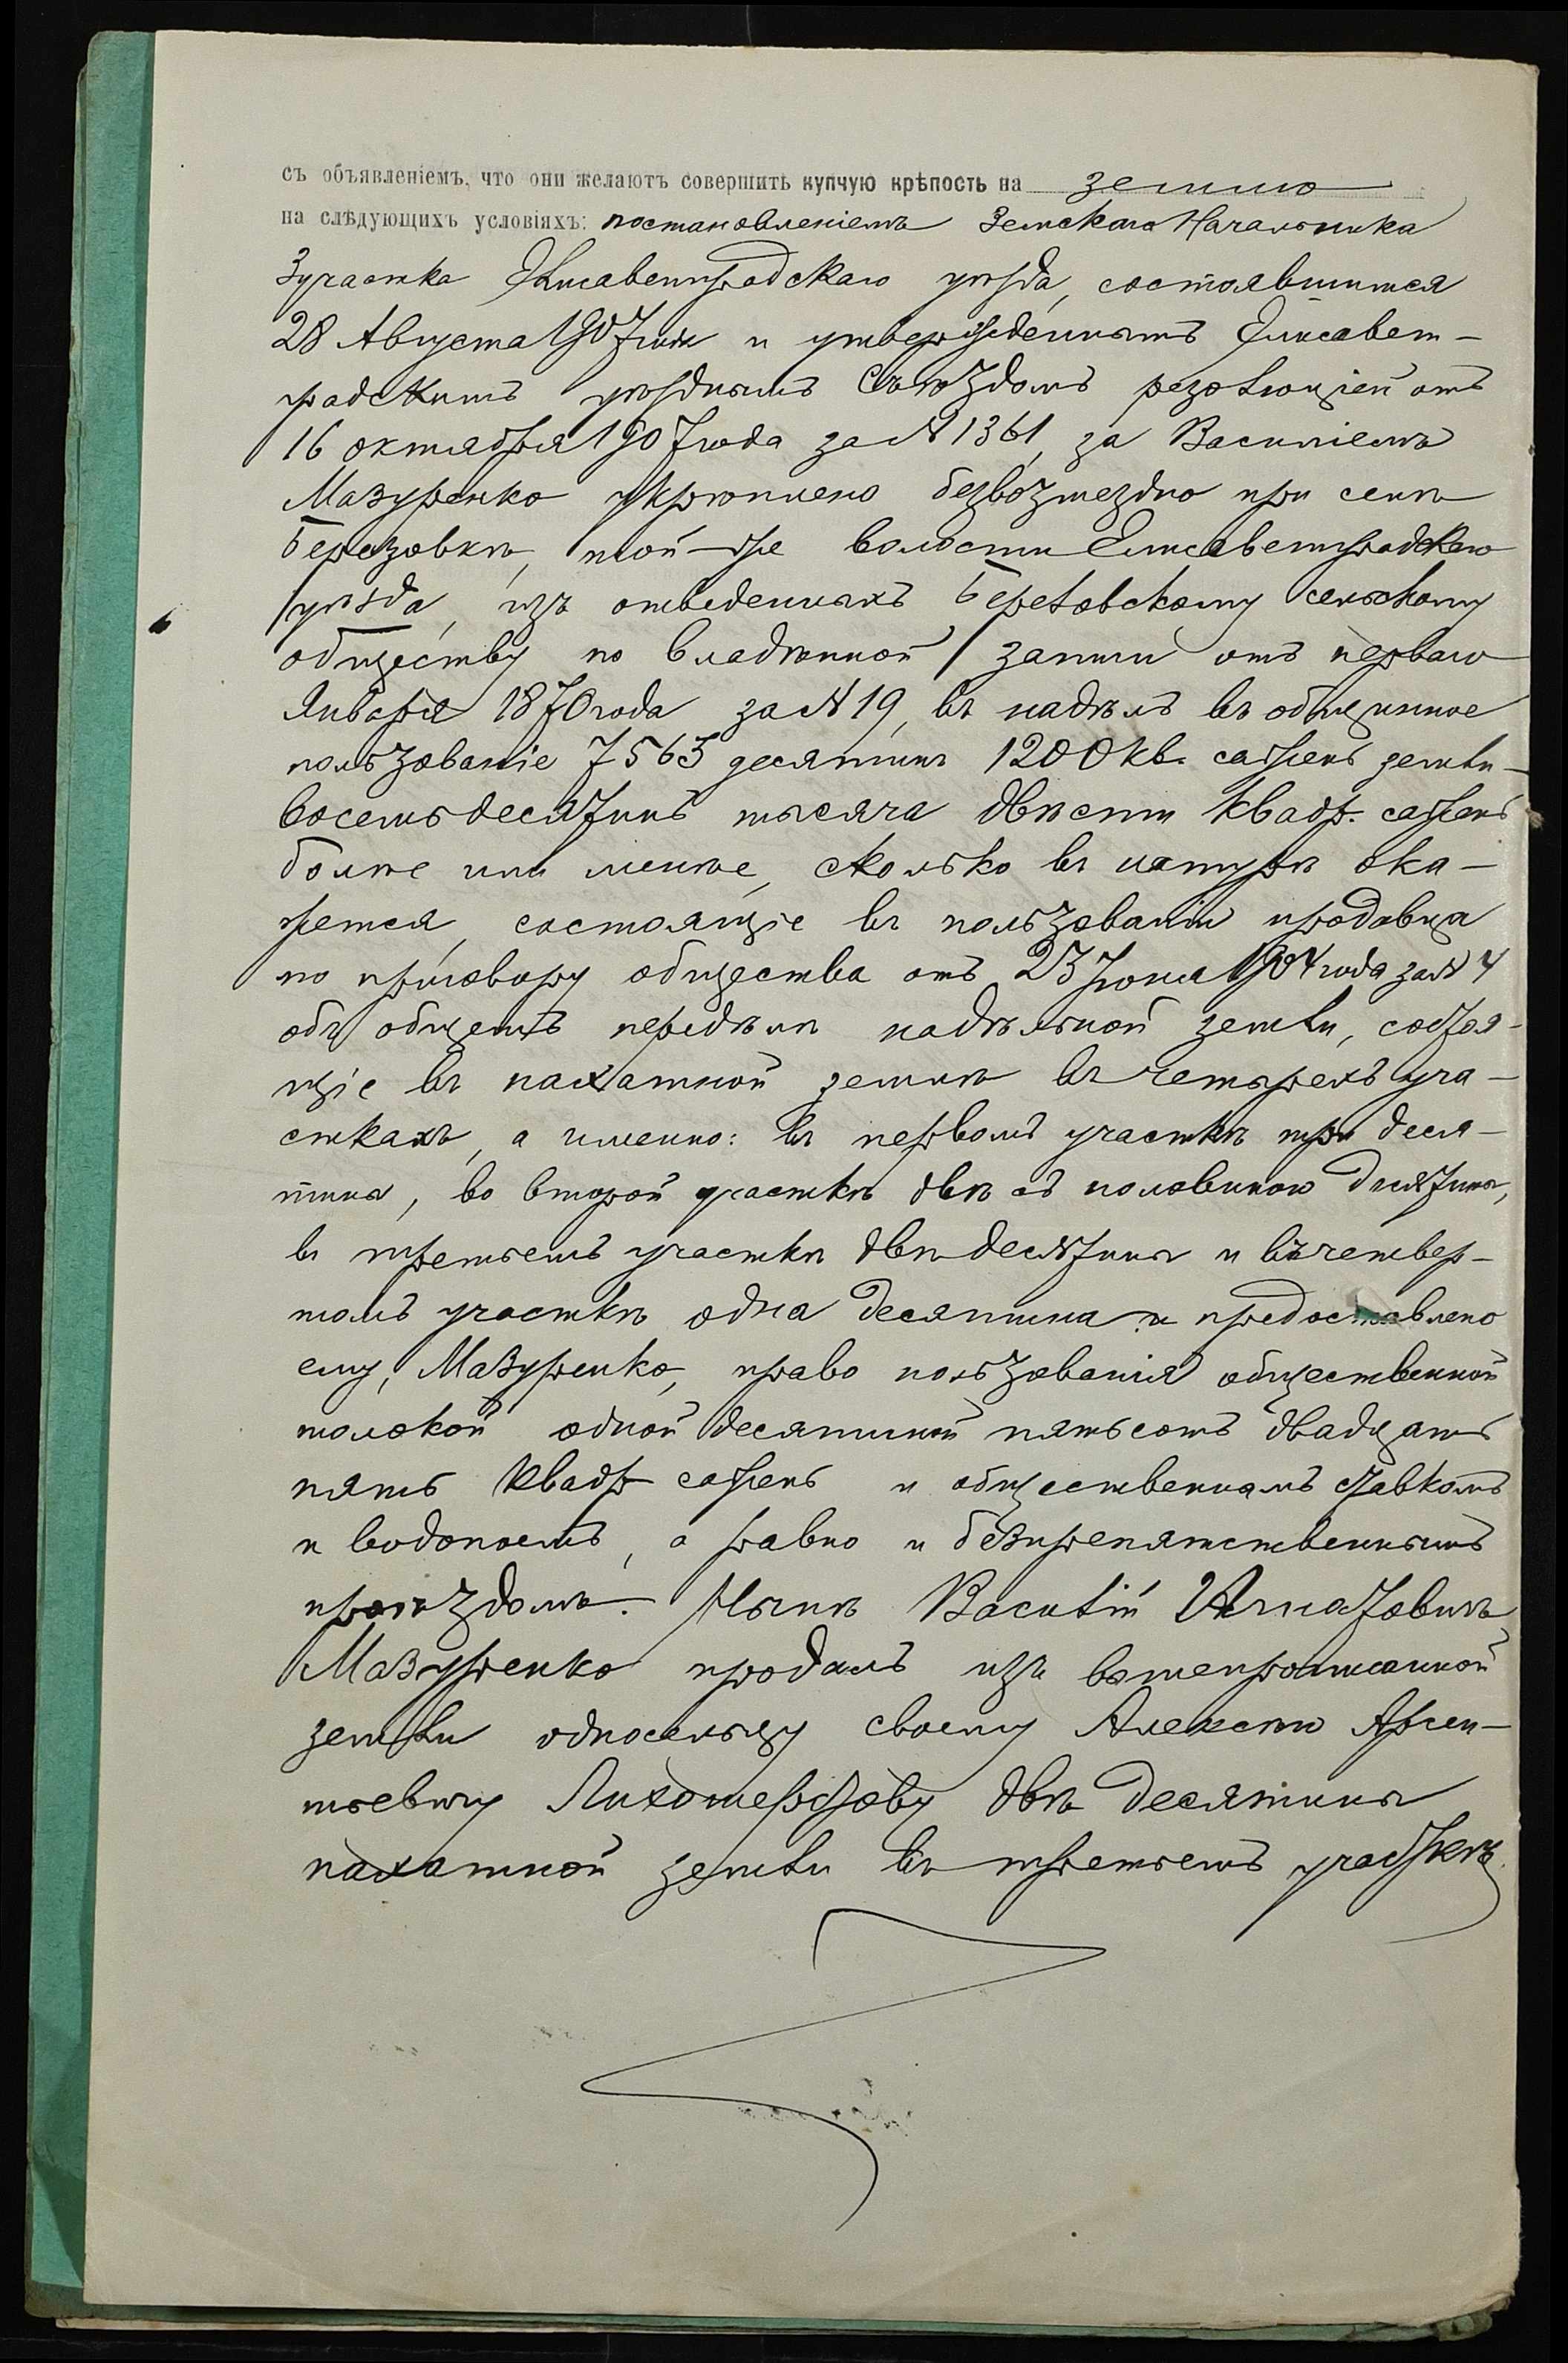 съ объявленіемъ, что они желаютъ совершить купчую крѣпость на землю
на слѣдующихъ условіяхъ: постановленіемъ Земскаго Начальника
3 участка Елисаветградскаго уѣзда, состоявшимся
28 Августа 1907 года и утвержденнымъ Елисавет-
градскимъ уѣзднымъ Съѣздомъ резолюціей отъ
16 октября 1907 года за № 1361, за Василіемъ
Мазуренко укрѣплено безвозмездно при селѣ
Березовкѣ, той-же волости Елисаветградскаго
уѣзда, изъ отведенныхъ Березовскому сельскому
обществу по владѣнной записи отъ перваго
Января 1870 года за № 19, въ надѣлъ въ общинное
пользованіе 7563 десятинъ 1200 кв. сажень земли-
восемь десятинъ тысяча двѣсти квадр. сажень
болѣе или менѣе, сколько въ натурѣ ока-
жется, состоящіе въ пользованіи продавца
по приговору общества отъ 23 Іюня 1904 года за № 4
объ общемъ передѣлѣ надѣльной земли, состоя-
щіе въ пахатной землѣ въ четырехъ уча-
сткахъ, а именно: въ первомъ участкѣ три деся-
тины, во второй участкѣ двѣ съ половиною десятины,
въ третьемъ участкѣ двѣ десятины и въ четвер-
томъ участкѣ одна десятина и предоставлено
ему, Мазуренко, право пользованія общественной
толокой одной десятиной пятьсотъ двадцать
пять квадр. сажень и общественнымъ ставкомъ
и водопоемъ, а равно и безпрепятственнымъ
проѣздомъ. Нынѣ Василій Игнатовичъ
Мазуренко продалъ изъ вышепрописанной
земли односельцу своему Алексѣю Арсен-
тьевичу Лихошерстову двѣ десятины
пахатной земли въ третьемъ участкѣ